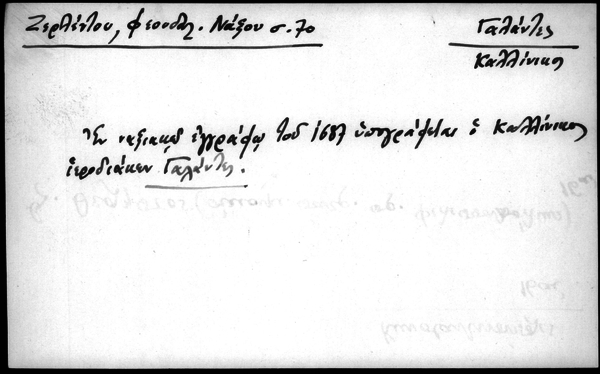 Ζερλέντου, Φεουδ. Νάξου σ. 70
Γαλάντες
Καλλίνικος
Ἐν ναξιακῷ ἐγγράφῳ τοῦ 1687 ὑπογράφεται ὁ Καλλίνικος
ἱεροδιάκων Γαλάντες.